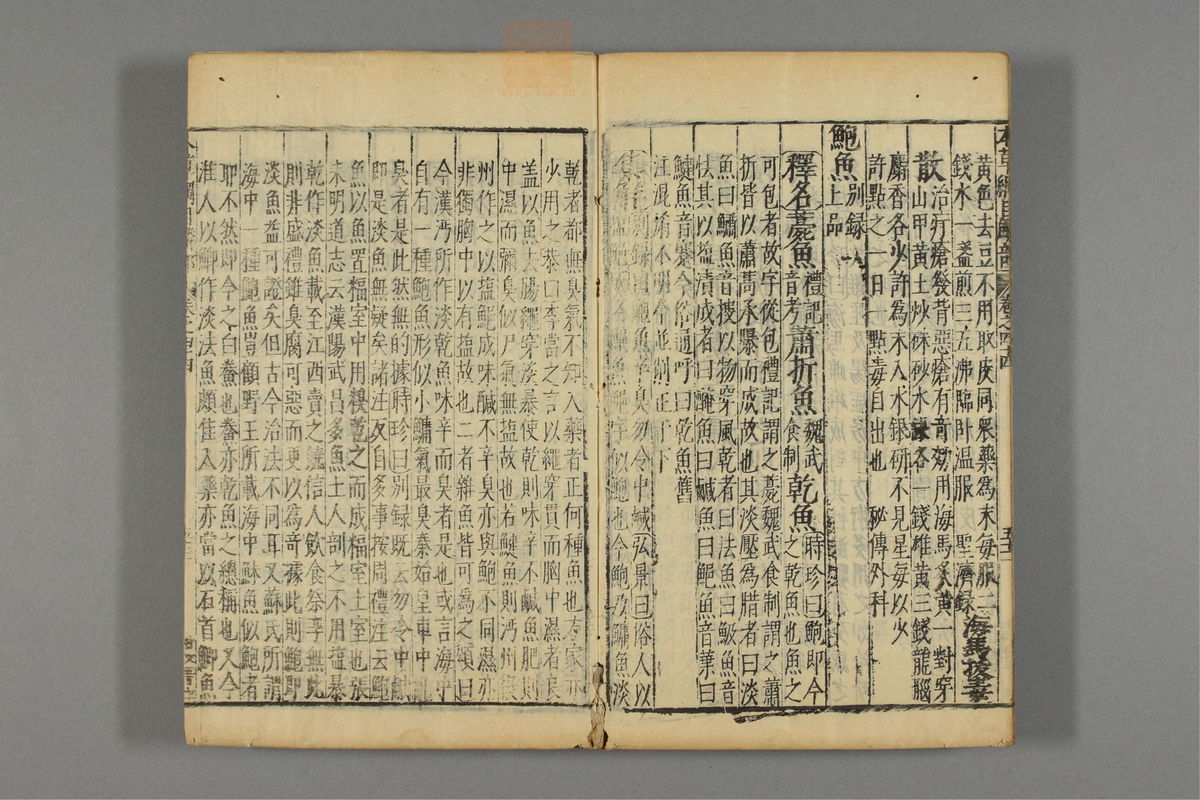 本草綱目鱗部 卷之四十四
黃色去豆不用取皮同衆藥為末每服二
錢水一盞煎三五沸臨卧温服 聖濟錄 海馬拔毒
散 治疔瘡發背惡瘡有竒効用海馬炙黃一對穿
山甲黃土炒硃砂水 各一錢雄黃三錢龍腦
麝香各少許為末入水銀研不見星每以少
許點之一日一點毒自出也 秘傳外科
鮑魚 別録上品
釋名薧魚 禮記音考 蕭折魚 魏武食制 乾魚 時珍曰鮑即今之乾魚也魚之
可包者故字從包禮記謂之薧魏武食制謂之蕭
折皆以蕭蒿承曝而成故也其淡壓為腊者曰淡
魚曰鱐魚音搜以物穿風乾者曰法魚曰鮁魚音
怯其以塩漬成者曰醃魚曰鹹魚曰鮿魚音葉曰
鰎魚音蹇今俗通呼曰乾魚舊
註混淆不明今並削正于下
勿令中鹹 弘景曰俗人以
似鮑也今鮑乃鱅魚淡
乾者都無臭氣不知入藥者正何種魚也方家亦
少用之恭曰李當之言以繩穿貫而胸中濕者良
盖以魚去腸繩穿淡暴使乾則味辛不鹹魚肥則
中濕而彌臭似尸氣無塩故也若鰎魚則沔州
州作之以塩鮑成味鹹不辛臭亦與鮑不同濕亦
非獨胸中以有塩故也二者雜魚皆可為之頌曰
今漢沔所作淡乾魚味辛而臭者是也或言海中
自有一種鮑魚形似小鱅氣最臭秦始皇車中
臭者是此然無的據時珍曰別録既云勿令中鹹
即是淡魚無疑矣諸注反自多事按周禮注云鮑
魚以魚置楅室中用糗乾之而成楅室土室也張
耒明道志云漢陽武昌多魚土人剖之不用塩暴
乾作淡魚載至江西賣之饒信人飲食祭享無此
則非盛禮雖臭腐可惡而更以為竒據此則鮑即
淡魚益可證矣但古今治法不同耳又蘇氏所謂
海中一種鮑魚豈顧野王所載海中魚似鮑者
耶不然即今之白鯗也鯗亦乾魚之總稱也又今
淮人以鯽作淡法魚頗佳入藥亦當以石首鯽魚